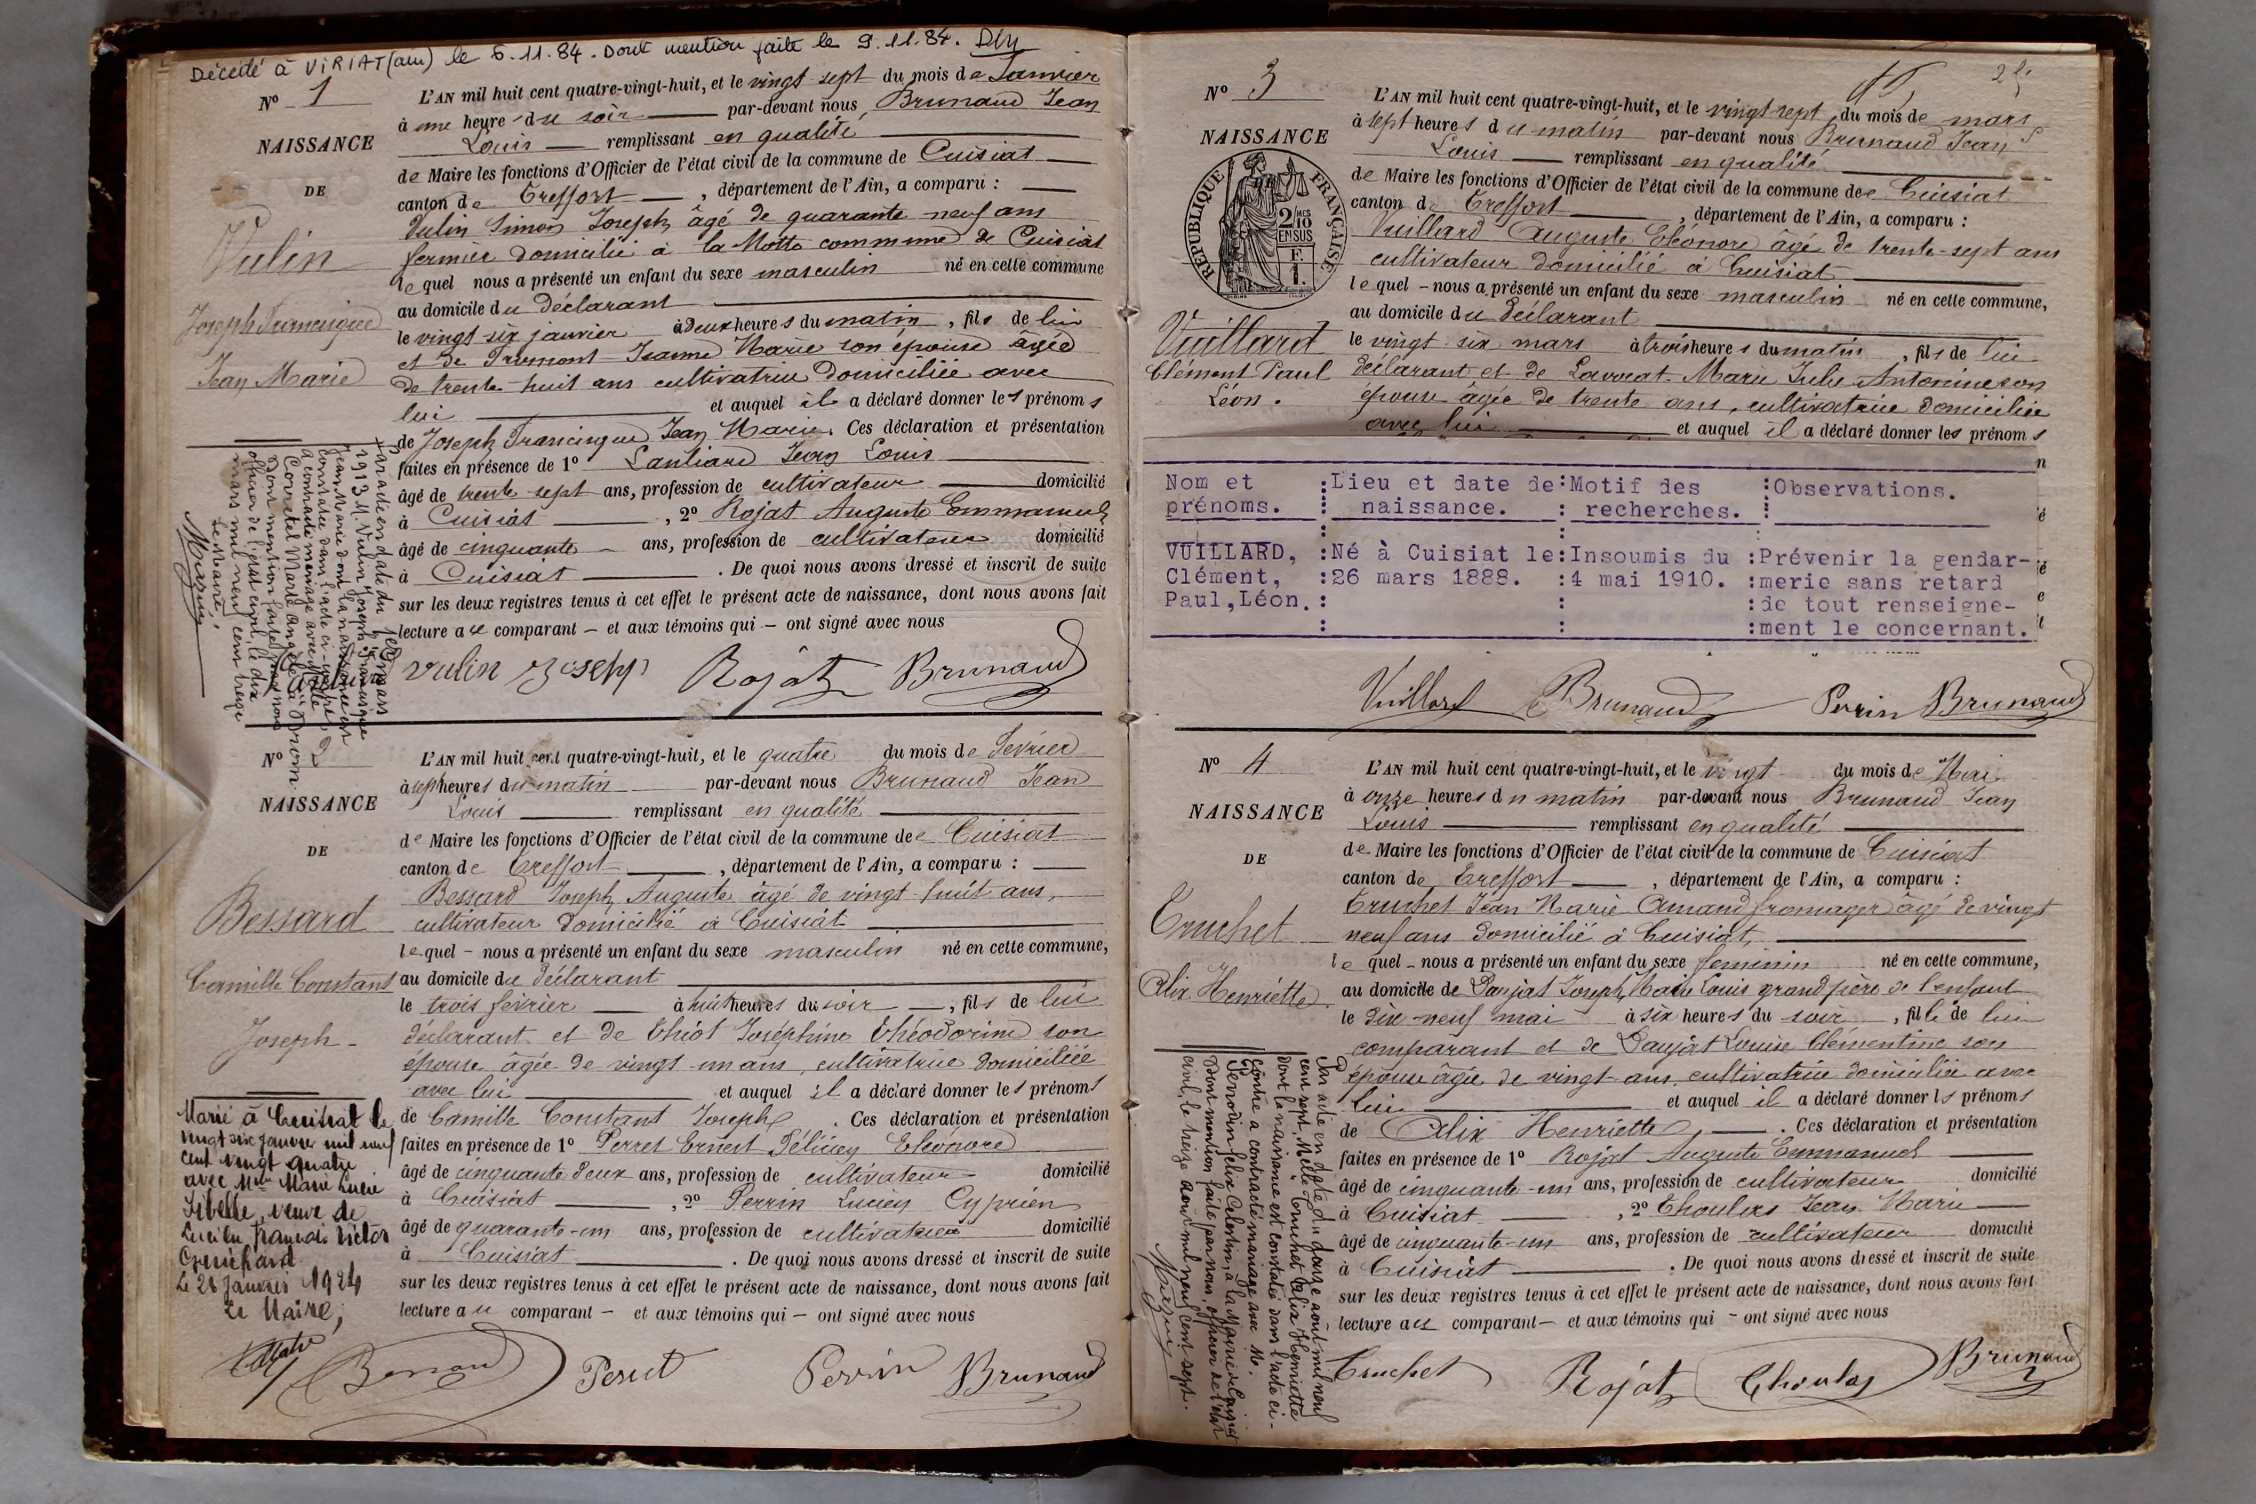 Décédé à VIRIAT (ain) le 6.11.84. Dont mention faite le 9.11.84.
N° 1
NAISSANCE
DE
Vulin
Joseph Francisque
Jean Marie
L'AN mil huit cent quatre-vingt-huit, et le vingt sept du mois de Janvier
à une heure du soir par-devant nous Brunaud Jean
Louis remplissant en qualité
de Maire les fonctions d'Officier de l'état civil de la commune de Cuisiat
canton de Treffort, département de l'Ain, a comparu :
Vulin Simon Joseph âgé de quarante neuf ans
fermier domicilié à la Motte commune de Cuisiat
lequel nous a présenté un enfant du sexe masculin né en cette commune
au domicile du déclarant
le vingt six janvier à deux heures du matin, fils de lui
et de Tremont Jeanne Marie son épouse âgée
de trente huit ans cultivatrice domiciliée avec
lui et auquel il a déclaré donner les prénoms
de Joseph Francisque Jean Marie. Ces déclaration et présentation
faites en présence de 1° Lantiard Jean Louis
âgé de trente sept ans, profession de cultivateur domicilié
à Cuisiat, 2° Rojat Auguste Emmanuel
âgé de cinquante ans, profession de cultivateur domicilié
à Cuisiat. De quoi nous avons dressé et inscrit de suite
sur les deux registres tenus à cet effet le présent acte de naissance, dont nous avons fait
lecture au comparant – et aux témoins qui – ont signé avec nous
Vulin Joseph Rojat Brunaud
Par acte en date du premier mars
1913 M. Vulin Joseph Francisque
Jean Marie dont la naissance est
constatée dans l'acte ci-contre
a contracté mariage avec Mlle
Corretel Marie Angèle à Drom.
Dont mention faite par nous
officier de l'état civil, le dix
mars mil neuf cent treize
Le Maire,
N° 2
NAISSANCE
DE
Bessard
Camille Constant
Joseph
L'AN mil huit cent quatre-vingt-huit, et le quatre du mois de Février
à sept heures du matin par-devant nous Brunaud Jean
Louis remplissant en qualité
de Maire les fonctions d'Officier de l'état civil de la commune de Cuisiat
canton de Treffort, département de l'Ain, a comparu :
Bessard Joseph Auguste âgé de vingt huit ans,
cultivateur domicilié à Cuisiat
lequel – nous a présenté un enfant du sexe masculin né en cette commune,
au domicile du déclarant
le trois février à huit heures du soir, fils de lui
déclarant et de Chiot Joséphine Théodorine son
épouse âgée de vingt un ans, cultivatrice domiciliée
avec lui et auquel il a déclaré donner les prénoms
de Camille Constant Joseph. Ces déclaration et présentation
faites en présence de 1° Perret Ernest Félicien Eléonore
âgé de cinquante deux ans, profession de cultivateur domicilié
à Cuisiat, 2° Perrin Lucien Cyprien
âgé de quarante-un ans, profession de cultivateur domicilié
à Cuisiat. De quoi nous avons dressé et inscrit de suite
sur les deux registres tenus à cet effet le présent acte de naissance, dont nous avons fait
lecture au comparant – et aux témoins qui – ont signé avec nous
Marié à Cuisiat le
vingt six janvier mil neuf
cent vingt quatre
avec Mme Marie Lucie
Sibelle, veuve de
Lucien François Victor
Guichard
Le 28 Janvier 1924
Le Maire,
Bessard Perret Perrin Brunaud
N° 3
NAISSANCE
RÉPUBLIQUE FRANÇAISE
2/10 MES
EN SUS
F.
1.
Vuillard
Clément Paul
Léon.
L'AN mil huit cent quatre-vingt-huit, et le vingt sept du mois de mars
à sept heures du matin par-devant nous Brunaud Jean
Louis remplissant en qualité
de Maire les fonctions d'Officier de l'état civil de la commune de Cuisiat
canton de Treffort, département de l'Ain, a comparu :
Vuillard Auguste Eléonore âgé de trente-sept ans
cultivateur domicilié à Cuisiat
lequel – nous a présenté un enfant du sexe masculin né en cette commune,
au domicile du déclarant
le vingt six mars à trois heures du matin, fils de lui
déclarant et de Lavocat Marie Julie Antonine son
épouse âgée de trente ans, cultivatrice domiciliée
avec lui et auquel il a déclaré donner les prénoms
Nom et :Lieu et date de:Motif des :Observations.
prénoms. : naissance. : recherches. :
VUILLARD, :Né à Cuisiat le:Insoumis du :Prévenir la gendar-
Clément, :26 mars 1888. :4 mai 1910. :merie sans retard
Paul,Léon.: : :de tout renseigne-
: : :ment le concernant.
Vuillard Brunaud Perrin Brunaud
N° 4
NAISSANCE
DE
Truchet
Alix Henriette
L'AN mil huit cent quatre-vingt-huit, et le vingt du mois de Mai
à onze heures du matin par-devant nous Brunaud Jean
Louis remplissant en qualité
de Maire les fonctions d'Officier de l'état civil de la commune de Cuisiat
canton de Treffort, département de l'Ain, a comparu :
Truchet Jean Marie Amand fromager âgé de vingt
neuf ans domicilié à Cuisiat,
lequel – nous a présenté un enfant du sexe feminin né en cette commune,
au domicile de Daujat Joseph Marie Louis grand père de l'enfant
le dix neuf mai à six heures du soir, fille de lui
comparant et de Daujat Louise Clémentine son
épouse âgée de vingt ans, cultivatrice domiciliée avec
lui et auquel il a déclaré donner ls prénoms
de Alix Henriette. Ces déclaration et présentation
faites en présence de 1° Rojat Auguste Emmanuel
âgé de cinquante-un ans, profession de cultivateur domicilié
à Cuisiat, 2° Choulas Jean Marie
âgé de cinquante-un ans, profession de cultivateur domicilié
à Cuisiat. De quoi nous avons dressé et inscrit de suite
sur les deux registres tenus à cet effet le présent acte de naissance, dont nous avons fait
lecture au comparant – et aux témoins qui – ont signé avec nous
Par acte en date du douze août mil neuf
cent sept, Melle Truchet Alix Henriette
dont la naissance est constatée dans l'acte ci-
contre a contracté mariage avec M.
Perrodin Félix Célestin, à la Mairie de Cuisiat
Dont mention faite par nous, officier de l'état
civil, le treize août mil neuf cent sept.
Truchet Rojat Choulas Brunaud